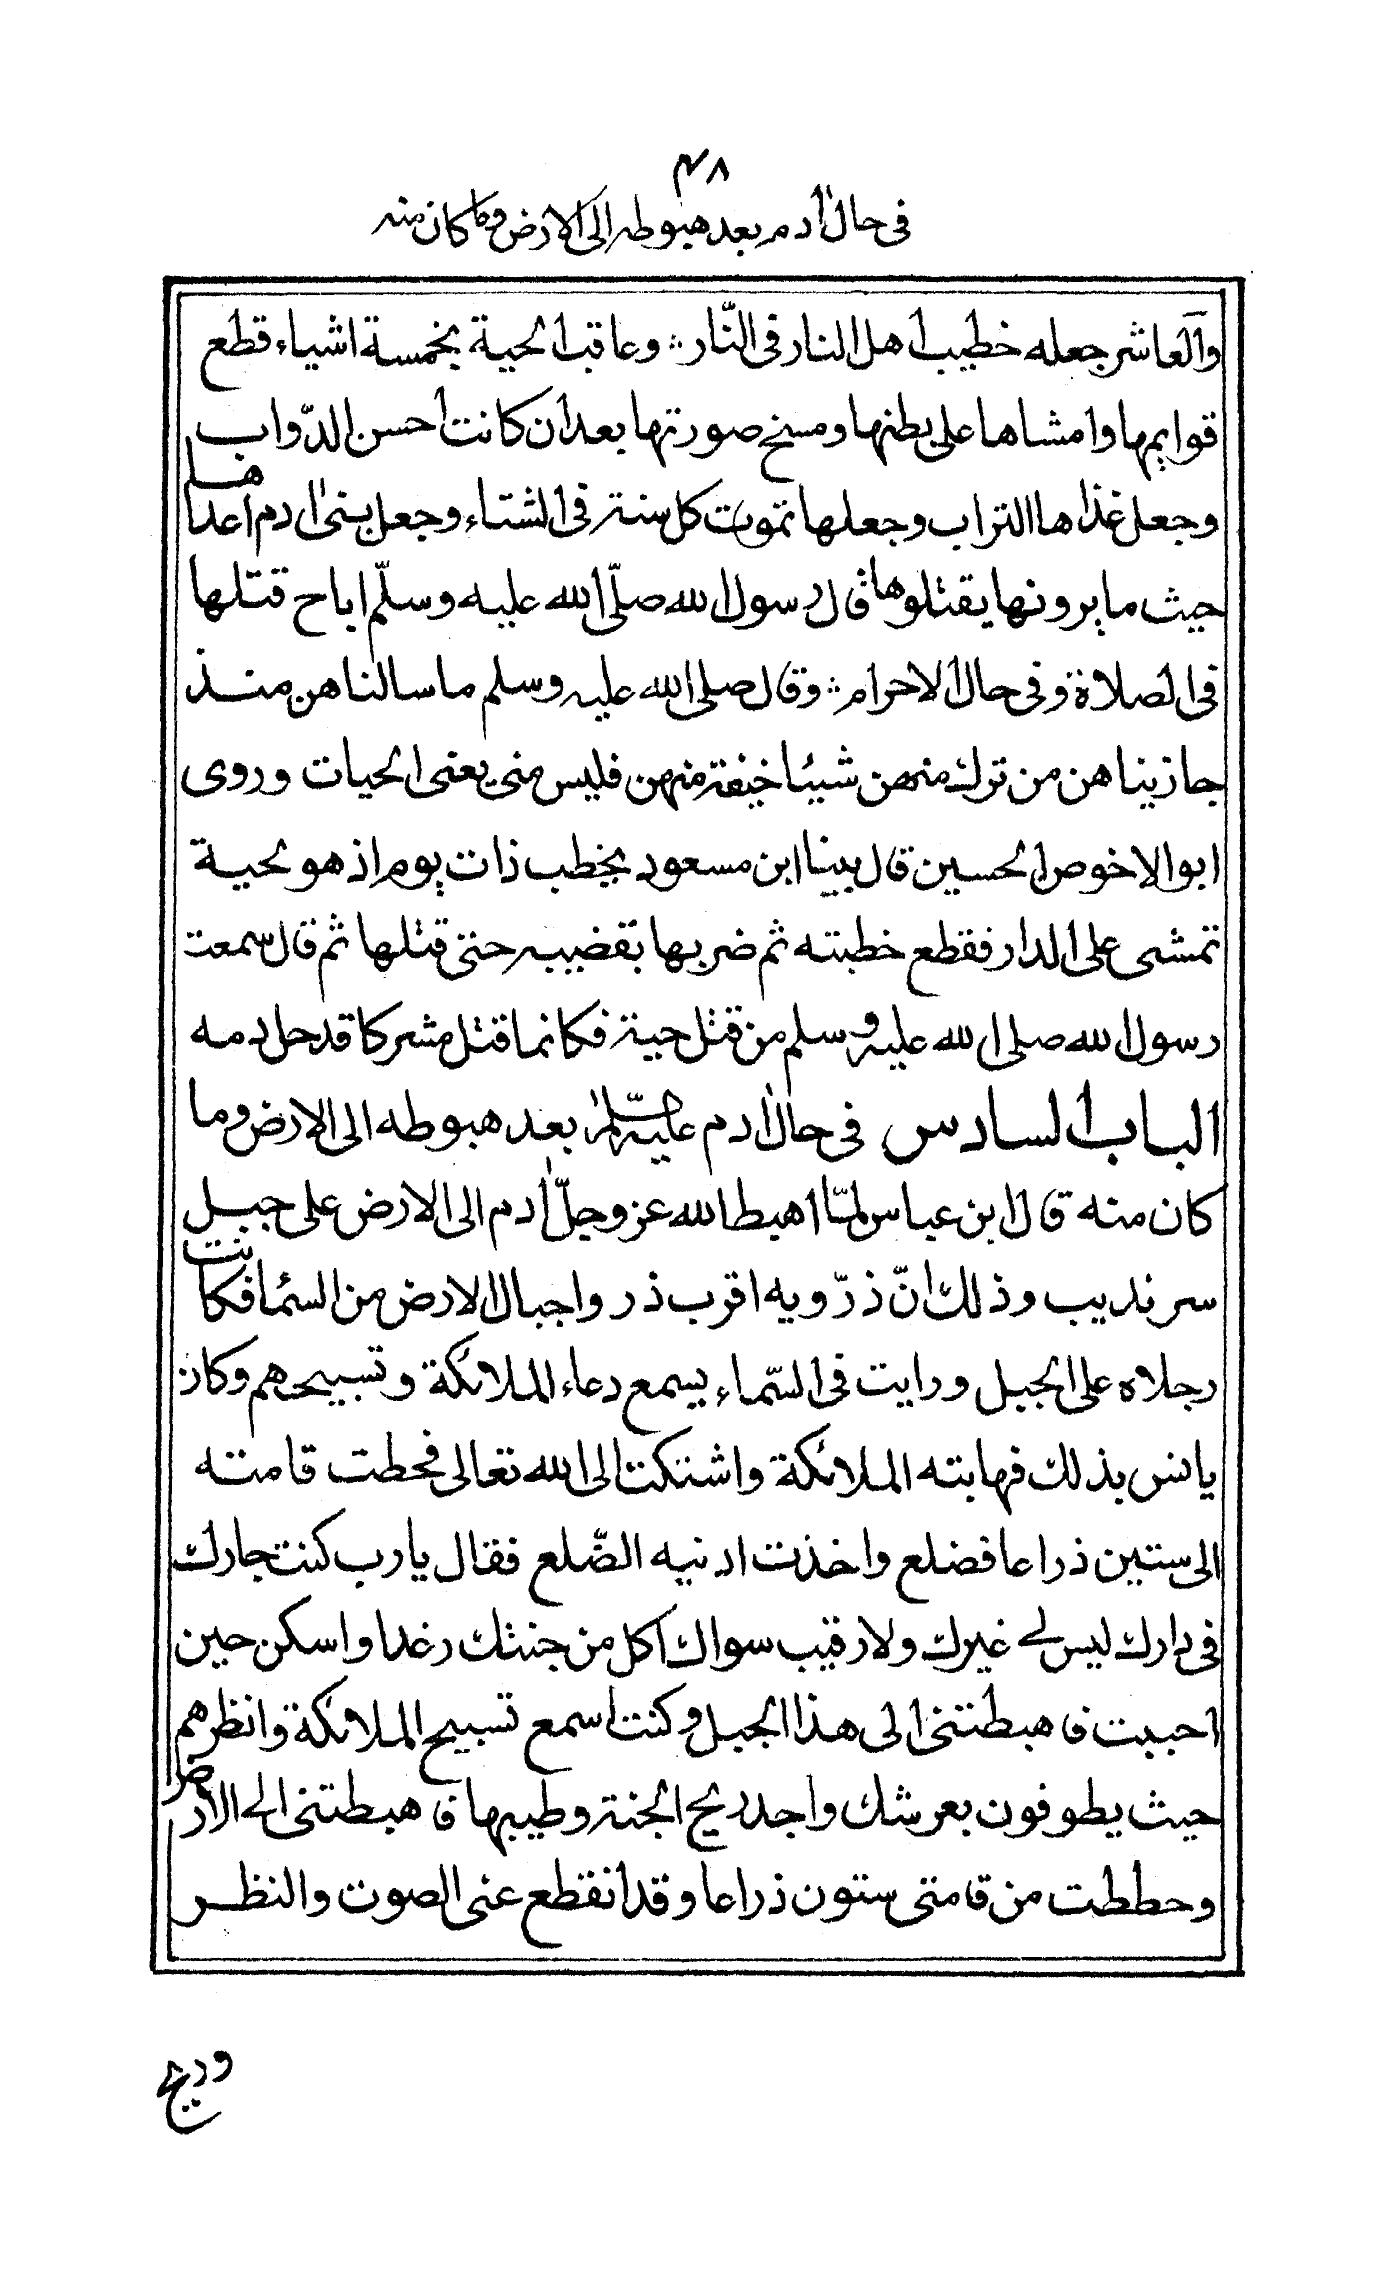 ٤٨
فى حال أدم بعد هبوطه الى الارض وما كان منه
والعاشر جعله خطيب أهل النار فى النّار ؞ وعاقب الحية بخمسة اشياء قطع
قوايمها وامشاها على بطنها ومسخ صورتها بعد ان كانت أحسن الدّواب
وجعل غذاها التراب وجعلها تموت كل سنة فى الشتاء وجعل بنى أدم أعداها
حيث ما يرونها يقتلوها قال رسول الله صلّى الله عليه وسلّم اباح قتلها
فى الصلاة وفى حال الاحرام ؞ وقال صلى الله عليه وسلم ما سالناهن منذ
جازيناهن من ترك منهن شيئا خيفة منهن فليس منى يعنى الحيات وروى
ابو الاخوص الحسين قال بينا ابن مسعود يخطب ذات يوم اذ هو بحية
تمشى على الدار فقطع خطبته ثم ضربها بقضيبه حتى قتلها ثم قال سمعت
رسول الله صلى الله عليه وسلم من قتل حية فكانما قتل مشركا قد حل دمه
الباب السادس فى حال أدم عليه السلام بعد هبوطه الى الارض وما
كان منه قال ابن عباس لمّا اهبط الله عز وجلّ أدم الى الارض على جبل
سرنديب وذلك انّ ذرّويه اقرب ذروا جبال الارض من السما فكانت
رجلاه على الجبل ورايت فى السّماء يسمع دعاء الملائكة وتسبيحهم وكان
يانس بذلك فهابته الملائكة واشتكت الى الله تعالى فحطت قامته
الى ستين ذراعا فضلع واخذت ادنيه الضّلع فقال يا رب كنت جارك
فى دارك ليس لى غيرك ولا رقيب سواك اكل من جنتك رغدا واسكن حين
احببت فاهبطتنى الى هذا الجبل وكنت اسمع تسبيح الملائكة وانظرهم
حيث يطوفون بعرشك واجد ريح الجنة وطيبها فاهبطتنى الى الارض
وحططت من قامتى ستون ذراعا وقد انقطع عنى الصوت والنظر
وريح